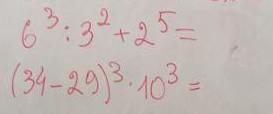 6³:3²+2⁵=
(34-29)³·10³=